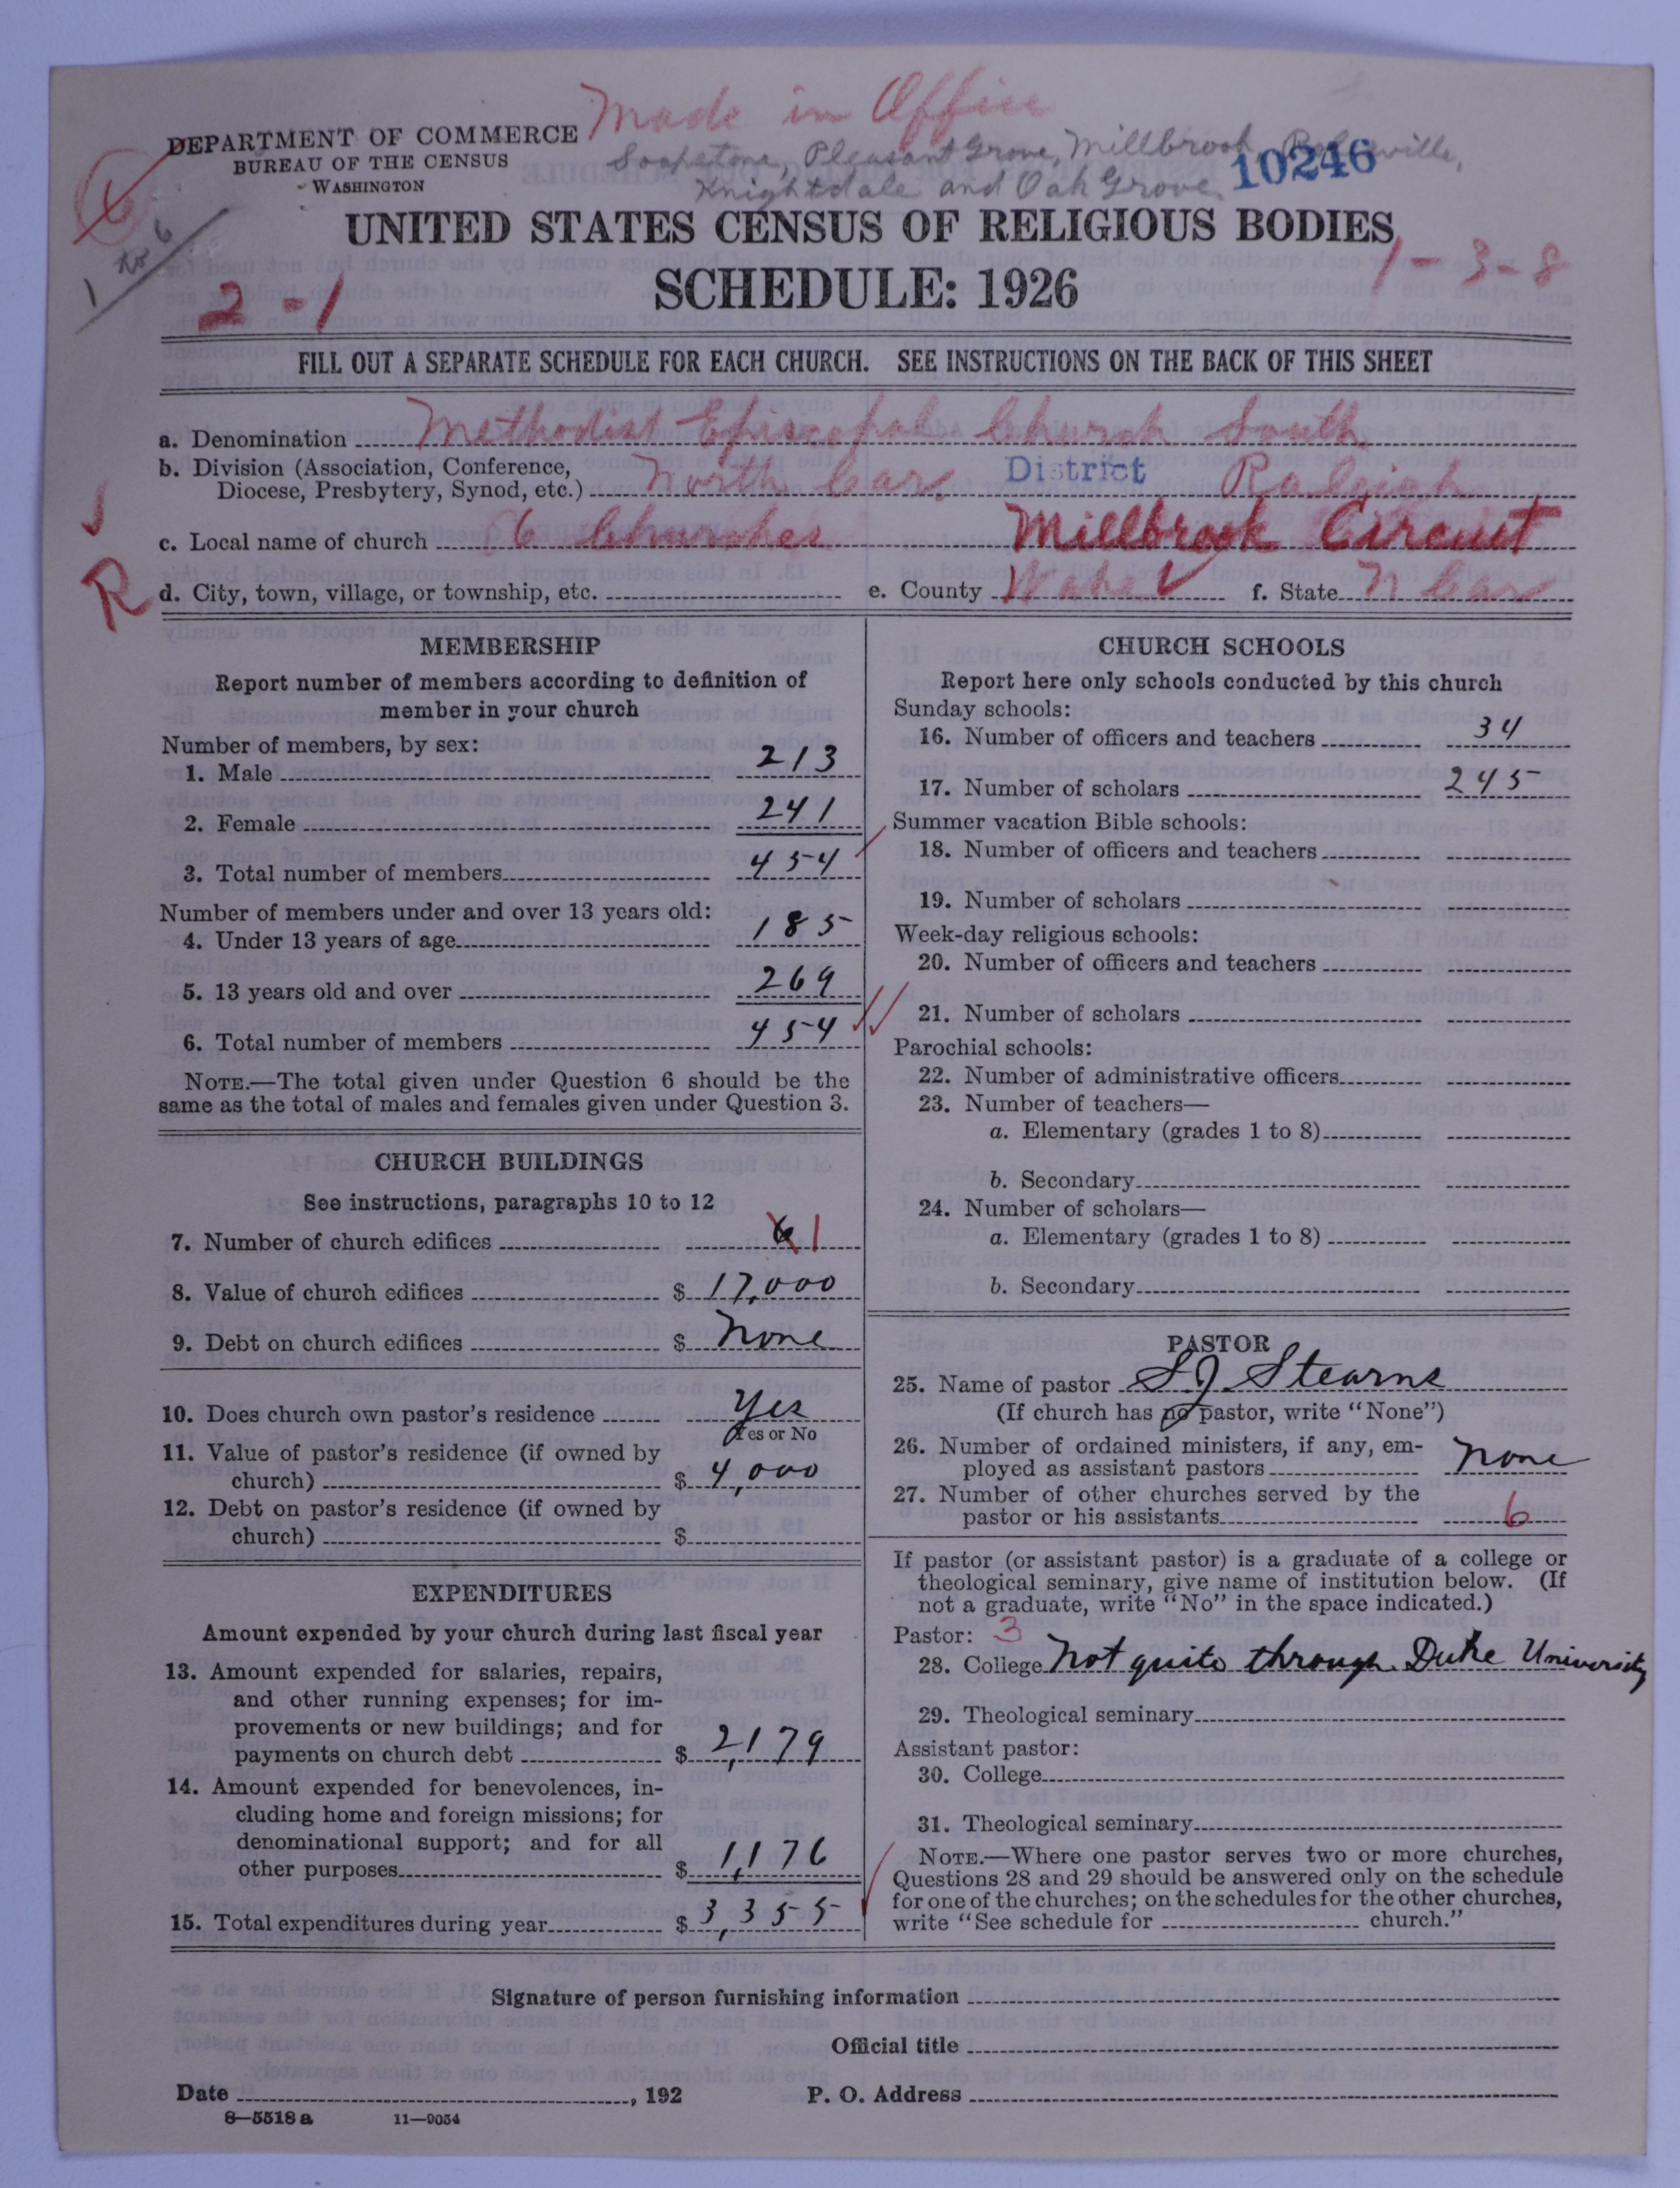 Made in Office
DEPARTMENT OF COMMERCE
BUREAU OF THE CENSUS
WASHINGTON
Soapstone, Pleasant Grove, Millbrook, Rolesville,
Knightdale and Oak Grove
10246
6
1 to 6
UNITED STATES CENSUS OF RELIGIOUS BODIES
SCHEDULE: 1926
2-1
1-3-8
FILL OUT A SEPARATE SCHEDULE FOR EACH CHURCH. SEE INSTRUCTIONS ON THE BACK OF THIS SHEET
a. Denomination Methodist Episcopal Church South
b. Division (Association, Conference,
Diocese, Presbytery, Synod, etc.) North Car. District Raleigh
c. Local name of church 6 Churches Millbrook Circuit
R
d. City, town, village, or township, etc. e. County Wake f. State N Car
MEMBERSHIP
Report number of members according to definition of
member in your church
Number of members, by sex:
1. Male 213
2. Female 241
3. Total number of members 454
Number of members under and over 13 years old:
4. Under 13 years of age 185
5. 13 years old and over 269
6. Total number of members 454
NOTE.—The total given under Question 6 should be the
same as the total of males and females given under Question 3.
CHURCH BUILDINGS
See instructions, paragraphs 10 to 12
7. Number of church edifices 6 1
8. Value of church edifices $ 17,000
9. Debt on church edifices $ None
10. Does church own pastor's residence Yes
Yes or No
11. Value of pastor's residence (if owned by
church) $ 4,000
12. Debt on pastor's residence (if owned by
church) $
EXPENDITURES
Amount expended by your church during last fiscal year
13. Amount expended for salaries, repairs,
and other running expenses; for im-
provements or new buildings; and for
payments on church debt $ 2,179
14. Amount expended for benevolences, in-
cluding home and foreign missions; for
denominational support; and for all
other purposes $ 1,176
15. Total expenditures during year $ 3,355
CHURCH SCHOOLS
Report here only schools conducted by this church
Sunday schools:
16. Number of officers and teachers 34
17. Number of scholars 245
Summer vacation Bible schools:
18. Number of officers and teachers
19. Number of scholars
Week-day religious schools:
20. Number of officers and teachers
21. Number of scholars
Parochial schools:
22. Number of administrative officers
23. Number of teachers—
a. Elementary (grades 1 to 8)
b. Secondary
24. Number of scholars—
a. Elementary (grades 1 to 8)
b. Secondary
PASTOR
25. Name of pastor S J Stearns
(If church has no pastor, write "None")
26. Number of ordained ministers, if any, em-
ployed as assistant pastors None
27. Number of other churches served by the
pastor or his assistants 6
If pastor (or assistant pastor) is a graduate of a college or
theological seminary, give name of institution below. (If
not a graduate, write "No" in the space indicated.)
Pastor: 3
28. College Not quite through Duke University
29. Theological seminary
Assistant pastor:
30. College
31. Theological seminary
NOTE.—Where one pastor serves two or more churches,
Questions 28 and 29 should be answered only on the schedule
for one of the churches; on the schedules for the other churches,
write "See schedule for church."
Signature of person furnishing information
Official title
Date , 192 P. O. Address
8—5518 a 11—9054